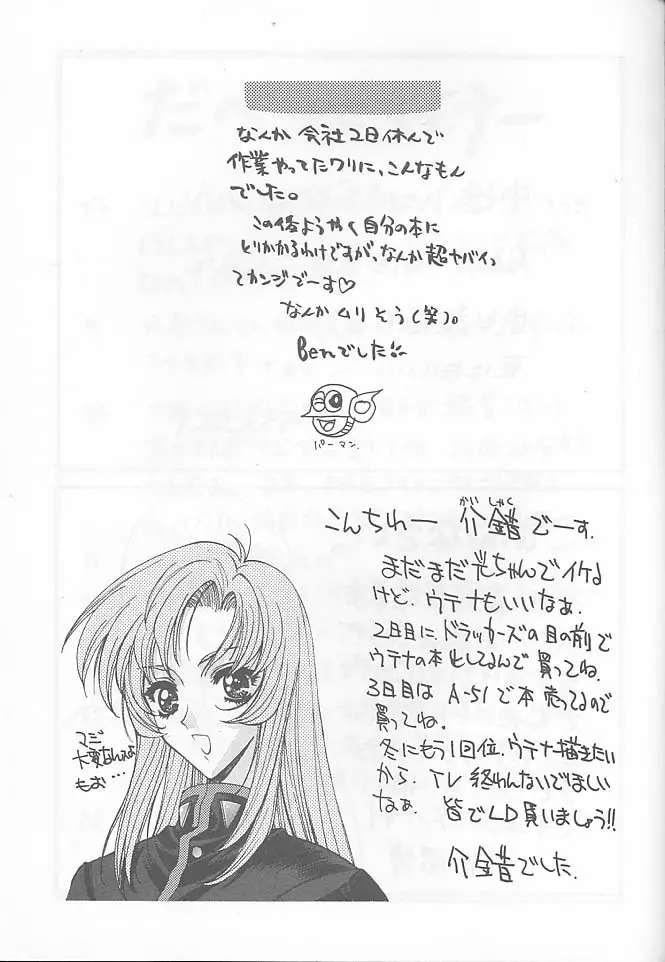 なんか 会社2日休んで
作業やってたワリに、こんなもん
でした。
この後ようやく自分の本に
とりかかるわけですが、なんか超ヤバイっ
てカンジでーす♡
なんかムリそう(笑)。
Benでした!!
パーマン.
こんちわー 介錯でーす.
がい しゃく
まだまだ光ちゃんでイケる
けど、ウテナもいいなぁ.
2日目に、ドラッカーズの目の前で
ウテナの本としてるんで 買ってね.
3日目は A-51で本売ってるので
買ってね.
冬にもう1回位、ウテナ描きたい
から、TV 終わんないでほしい
なぁ. 皆でLD買いましょう!!
介錯でした.
マジ
大変なんスよ
もお…